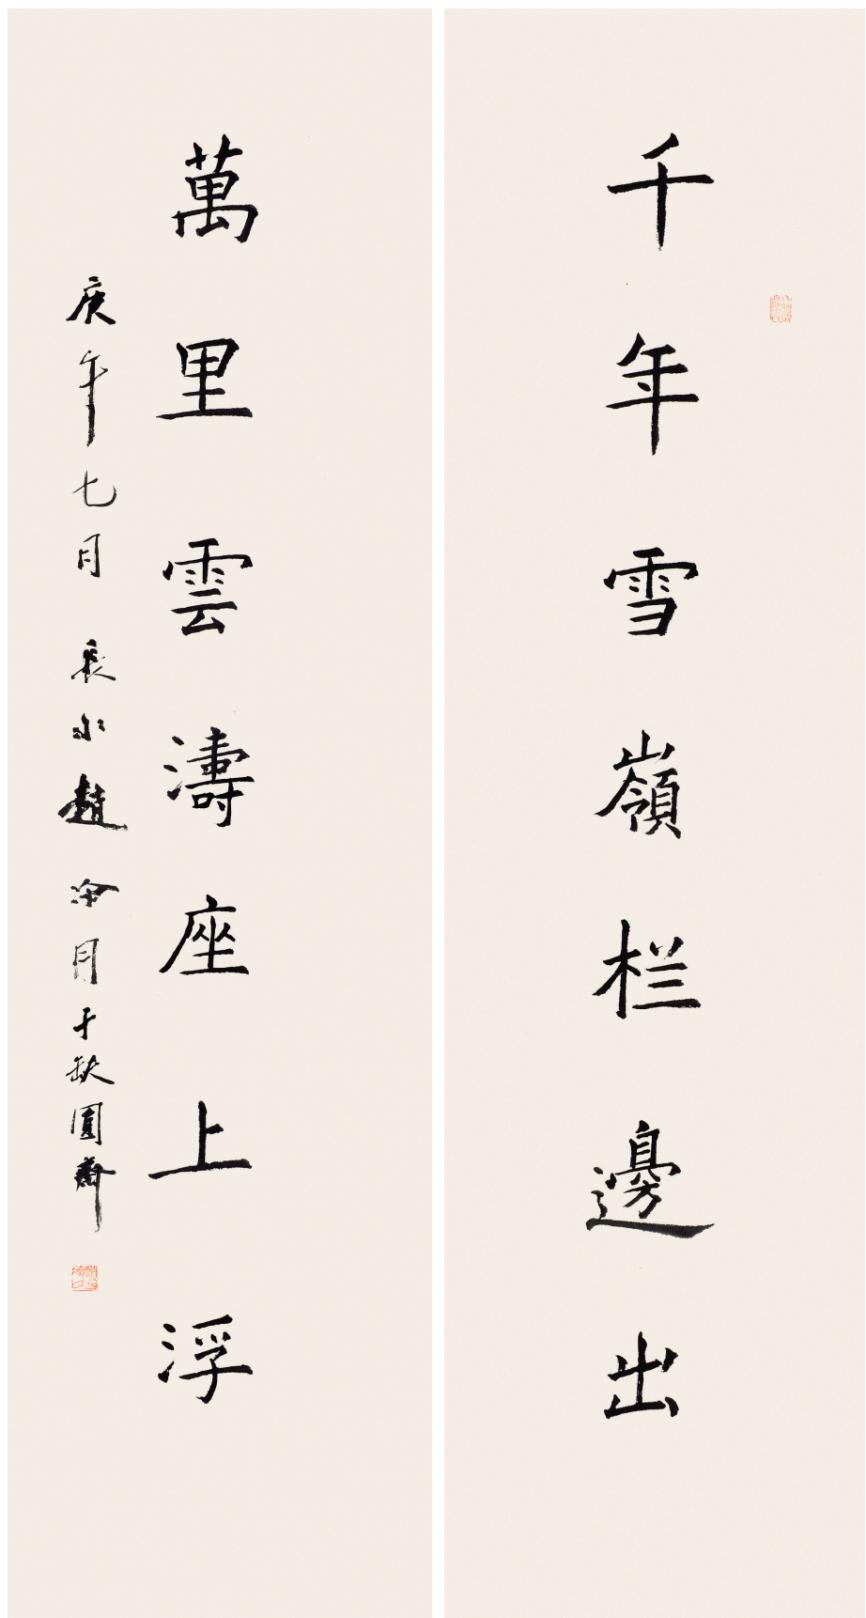 千年雪嶺栏邊出
萬里雲濤座上浮
庚午七月 長水趙冷月于缺圓齋